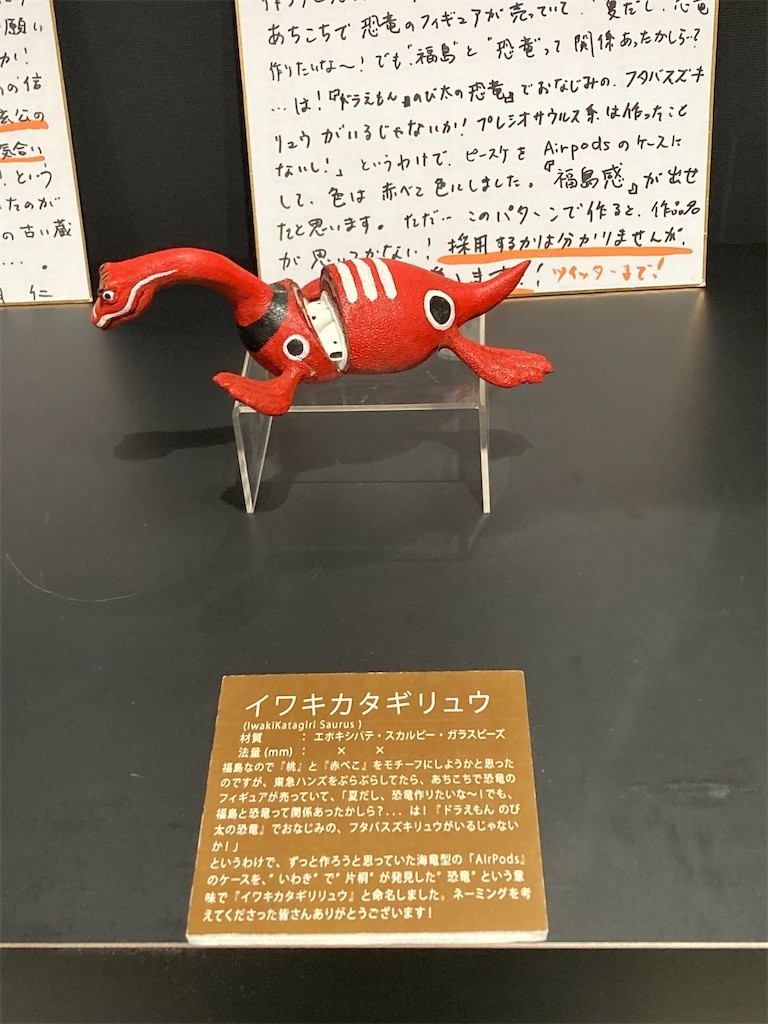 願い
か!
の信
玄公の
気合い
!という
たのが
の古い蔵
…。
仁
あちこちで恐竜のフィギュアが売っていて、「夏だし、恐竜
作りたいな～!でも"福島"と"恐竜"って関係あったかしら…?
…は!『ドラえもん のび太の恐竜』でおなじみの、フタバスズキ
リュウがいるじゃないか!プレシオサウルス系は作ったこと
ないし!」というわけで、ピースケを Airpodsのケースに
して、色は赤べこ色にしました。『福島感』が出せ
たと思います。ただ…このパターンで作ると、作品名
が思いつかない!採用するかは分かりませんが、
します!!ツイッターまで!
イワキカタギリュウ
(IwakiKatagiri Saurus )
材質 : エポキシパテ・スカルピー・ガラスビーズ
法量(mm) : × ×
福島なので『桃』と『赤べこ』をモチーフにしようかと思った
のですが、東急ハンズをぶらぶらしてたら、あちこちで恐竜の
フィギュアが売っていて、「夏だし、恐竜作りたいな～!でも、
福島と恐竜って関係あったかしら?...は!『ドラえもん のび
太の恐竜』でおなじみの、フタバスズキリュウがいるじゃない
か!」
というわけで、ずっと作ろうと思っていた海竜型の「AirPods」
のケースを、"いわき"で"片桐"が発見した"恐竜"という意
味で『イワキカタギリリュウ』と命名しました。ネーミングを考
えてくださった皆さんありがとうございます!